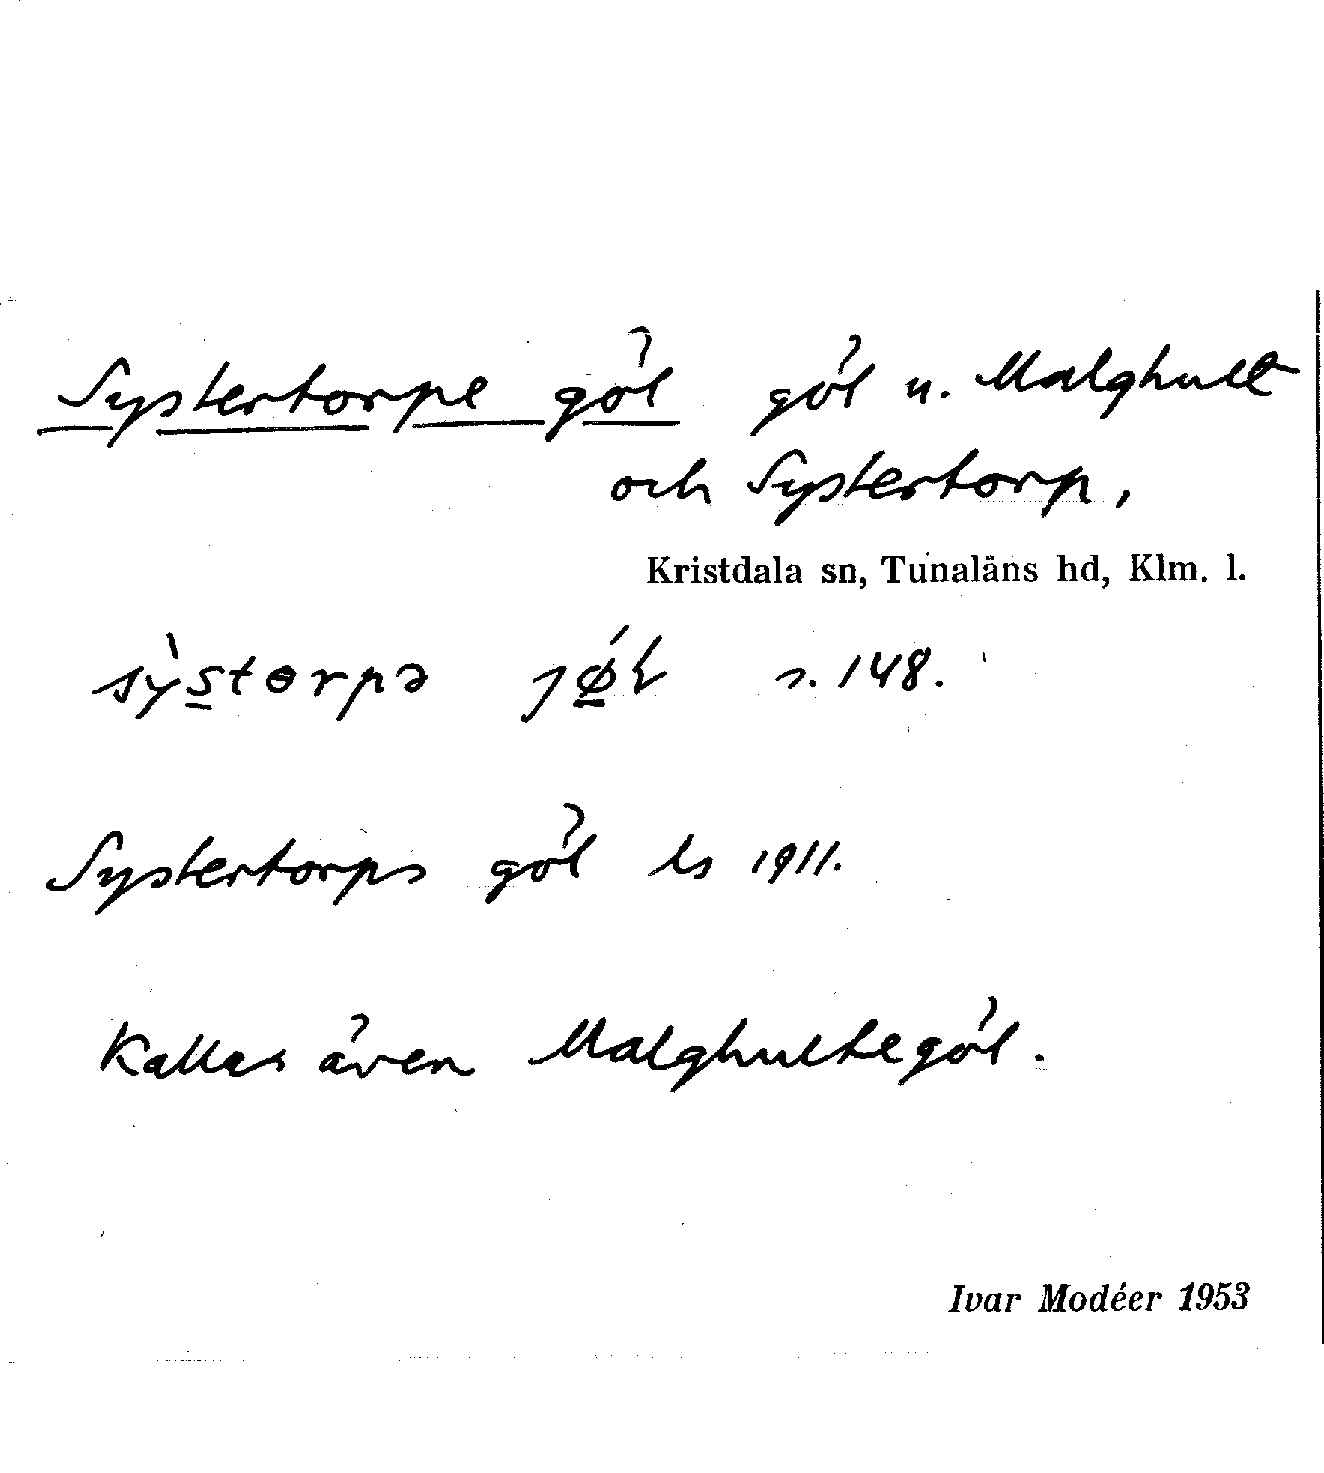 Systertorpe göl göl u. Malghult
och Systertorp,
Kristdala sn, Tunaläns hd, Klm. l.
sỳstɵrpə jǿl s. 148.
Systertorps göl ls 1911.
Kallas även Malghultegöl.
Ivar Modéer 1953